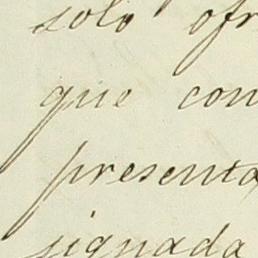 solo ofr
que con
presenta
signada